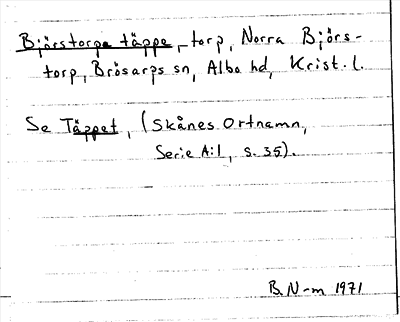 Björstorps täppe, torp, Norra Björs-
torp, Brösarps sn, Albo hd, Krist. l.
Se Täppet, (Skånes Ortnamn,
Serie A:1, s. 35).
B.N-m 1971